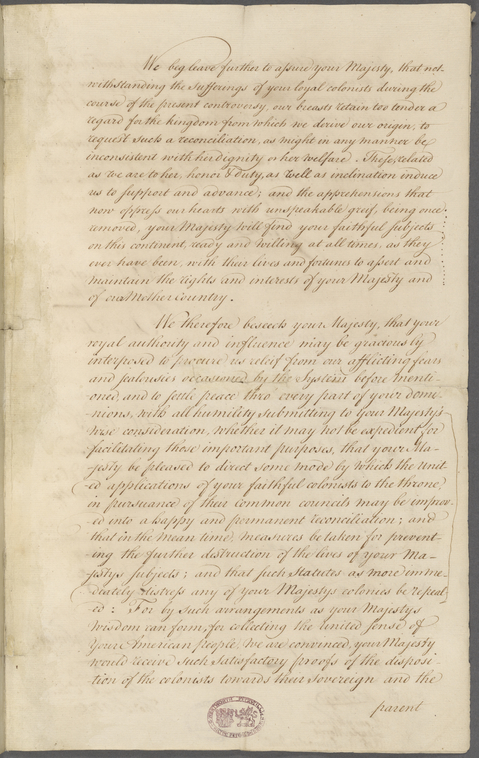 We beg leave further to assure your Majesty, that not-
withstanding the sufferings of your loyal colonists during the
course of the present controversy, our breasts retain too tender a
regard for the kingdom from which we derive our origin, to
request such a reconciliation, as might in any manner be
inconsistent with her dignity or her welfare. These, related
as we are to her, honor & duty, as well as inclination induce
us to support and advance; and the apprehensions that
now oppress our hearts with unspeakable greif, being once
removed, your Majesty will find your faithful subjects
on this continent ready and willing at all times, as they
ever have been, with their lives and fortunes to assert and
maintain the rights and interests of your Majesty and
of our Mother Country.
We therefore beseech your Majesty, that your
royal authority and influence may be graciously
interposed to procure us releif from our afflicting fears
and jealousies occasioned by the System before menti-
oned, and to settle peace thro' every part of your domi-
nions, with all humility submitting to your Majesty's
wise consideration, whether it may not be expedient for
facilitating those important purposes, that your Ma-
jesty be pleased to direct some mode by which the unit-
ed applications of your faithful colonists to the throne,
in pursuance of their common councils may be improv-
ed into a happy and permanent reconciliation; and
that in the mean time, measures be taken for prevent-
ing the further destruction of the lives of your Ma-
jestys subjects; and that such Statutes as more imme-
diately distress any of your Majestys colonies be repeal-
ed: For by such arrangements as your Majestys
wisdom can form, for collecting the united sense of
your American people, we are convinced, your Majesty
would receive such satisfactory proofs of the disposi-
tion of the colonists towards their sovereign and the
parent